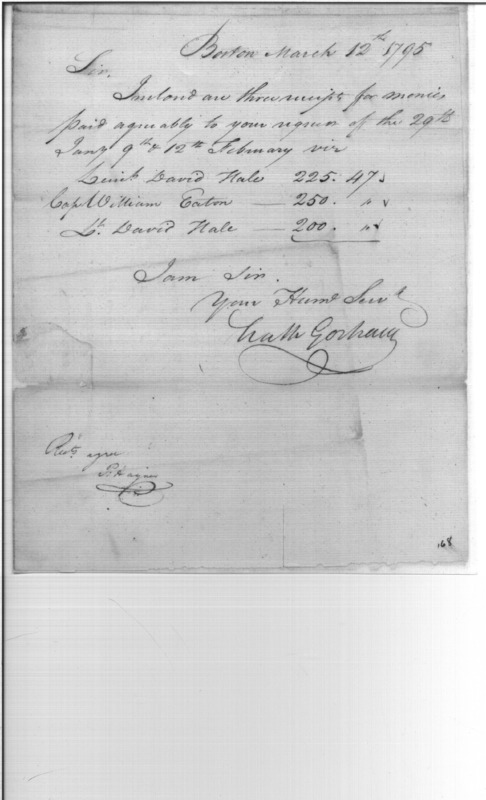 Boston March 12th 1795
Sir.
Inclosed are three receipts for monies
paid agreeably to your request of the 29th
Jany 9th & 12th February viz
Lieut. David Hale 225. 47
Cap. William Eaton — 250. "
Lt. David Hale — 200. "
I am Sir.
Your Huml Servt
Nath Gorham
Rects agree
P. Hagner
168